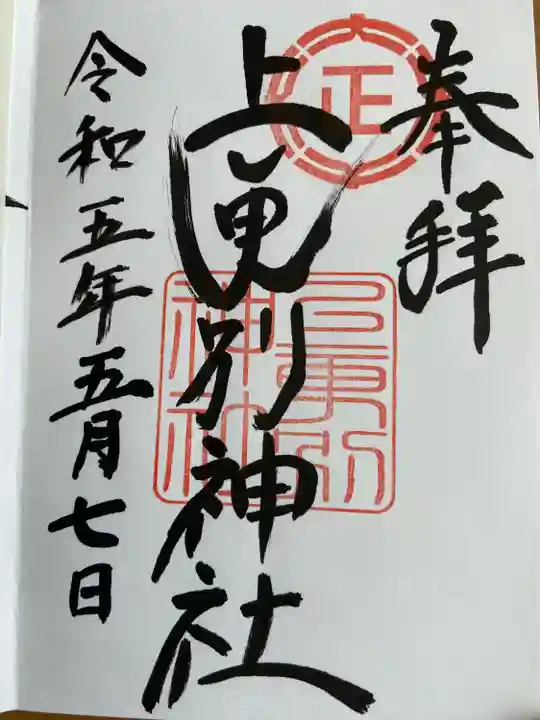 奉拝
正
上更別神社
上更別
神社
令和五年五月七日